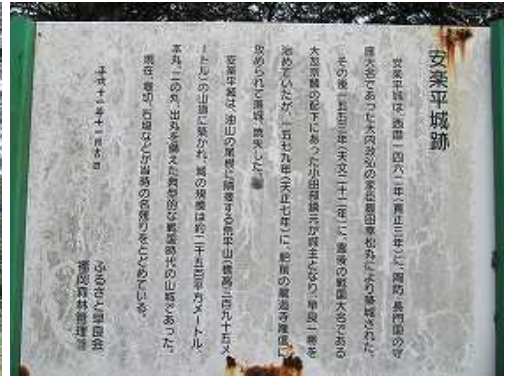 安楽平城跡
安楽平城は、西暦一四六二年(寛正三年)に、周防・長門国の守
護大名であった大内政弘の家臣飯田幸松丸により築城された。
その後一五五三年(天文二十二年)に、豊後の戦国大名である
大友宗麟の配下にあった小田部鎮元が城主となり、早良一帯を
治めていたが、一五七九年(天正七年)に、肥前の龍造寺隆信に
攻められて落城、焼失した。
安楽平城は、油山の尾根に隣接する荒平山(標高三百九十五メ
ートル)の山頂に築かれ、城の規模は約二千五百平方メートル、
本丸、二の丸、出丸を備えた典型的な戦国時代の山城であった。
現在、堀切、石垣などが当時の名残りをとどめている。
平成十二年十一月吉日
ふるさと早良会
福岡森林管理署